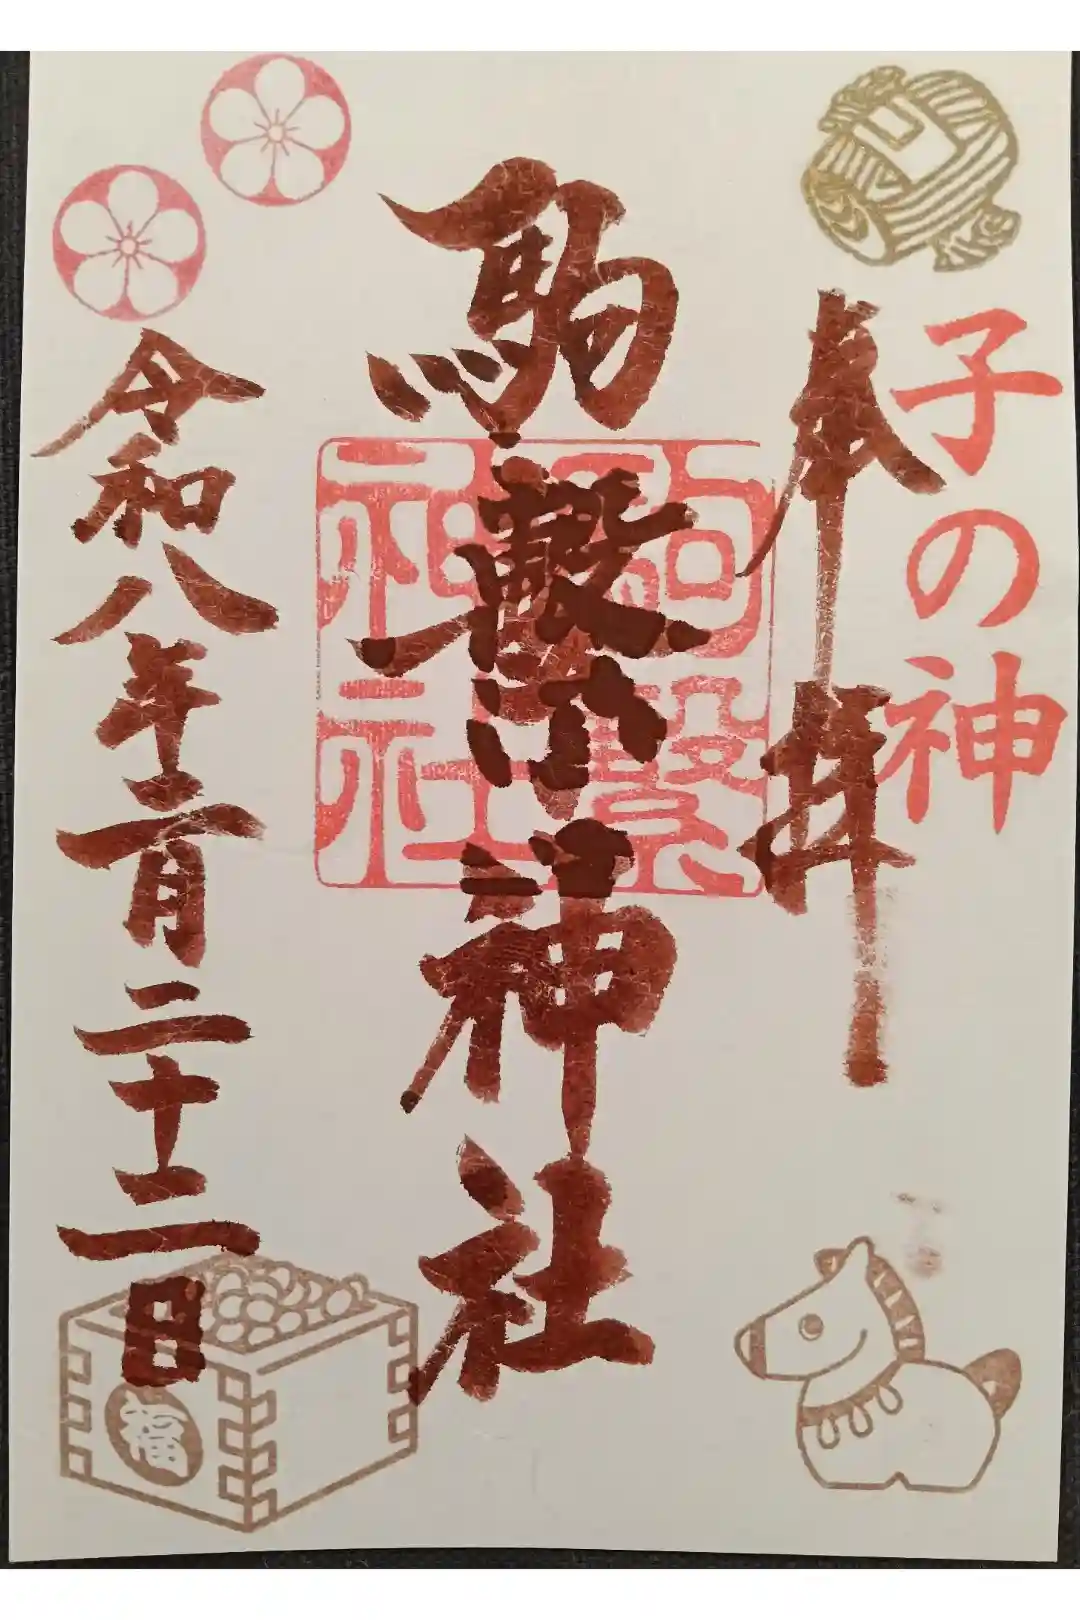 子の神
奉拝
駒繋神社
駒繋
神社
令和八年二月二十二日
福